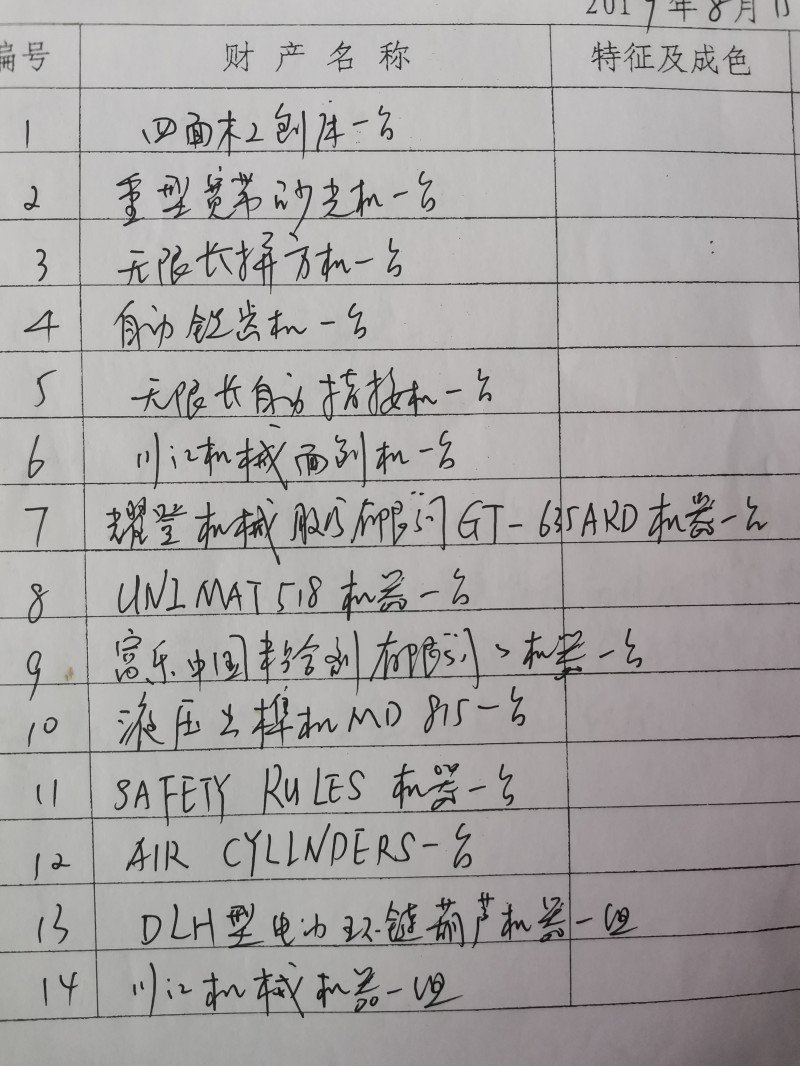 2019年8月
编号 财产名称 特征及成色
1 四面木工刨床一台
2 重型宽带砂光机一台
3 无限长拼方机一台
4 自动铣齿机一台
5 无限长自动指接机一台
6 川江机械面刨机一台
7 耀登机械股份有限公司GT-635ARD机器一台
8 UNIMAT 518 机器一台
9 富乐中国粘合剂有限公司机器一台
10 液压出榫机MD 815一台
11 SAFETY RULES 机器一台
12 AIR CYLINDERS一台
13 DLH型电动环链葫芦机器一组
14 川江机械机器一组